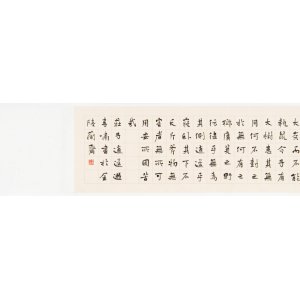 大矣而不能
執鼠今子有
大樹患其無
用何不樹之
於無何有之
鄉廣莫之野
彷徨乎無為
其側逍遙乎
寢臥其下不
夭斤斧物無
害者無所可
用安所困苦
哉
莊子逍遙遊
書於金
陵蘭齋